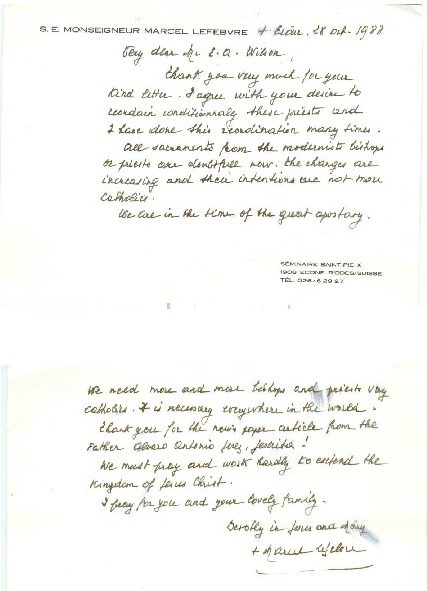 S. E. MONSEIGNEUR MARCEL LEFEBVRE + Ecône, 28 oct. 1988
Very dear Mr. E. Q. Wilson,
Thank you very much for your
kind letter. I agree with your desire to
reordain conditionnaly these priests and
I have done this reordination many times.
All sacraments from the modernists bishops
or priests are doubtfull now. the changes are
increasing and their intentions are not more
catholics.
We are in the time of the great apostasy.
SÉMINAIRE SAINT-PIE X
1908 ECONE RIDDES/SUISSE
TÉL. 026/6 29 27
We need more and more bishops and priests very
catholics. It is necessary everywhere in the world.
Thank you for the news paper article from the
Father Alvaro Antonio
We must pray and work hardly to extend the
Kingdom of Jesus Christ.
I pray for you and your lovely family.
Devotly in Jesus and Mary
+ Marcel Lefebvre